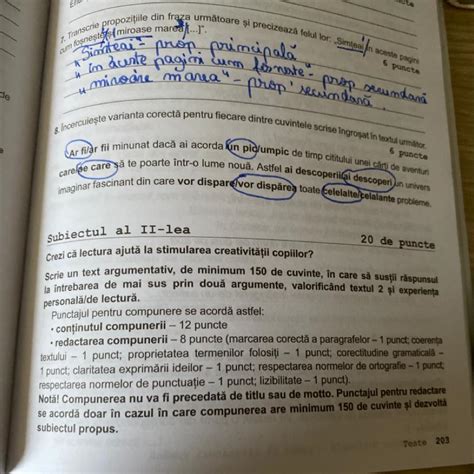 7. Transcrie propozițiile din fraza următoare și precizează felul lor: „Simțeai în aceste pagini
cum foșnește și miroase marea [...]".
6 puncte
"Simțeai" - prop. principală
" în aceste pagini cum foșnește - prop secundară
" miroase marea" - prop secundară.
8. Încercuiește varianta corectă pentru fiecare dintre cuvintele scrise îngroșat în textul următor.
6 puncte
Ar fi/ar fii minunat dacă ai acorda un pic/umpic de timp cititului unei cărți de aventuri
care/de care să te poarte într-o lume nouă. Astfel ai descoperii/ai descoperi un univers
imaginar fascinant din care vor dispare/vor dispărea toate celelalte/celalante probleme.
Subiectul al II-lea
20 de puncte
Crezi că lectura ajută la stimularea creativității copiilor?
Scrie un text argumentativ, de minimum 150 de cuvinte, în care să susții răspunsul
la întrebarea de mai sus prin două argumente, valorificând textul 2 și experiența
personală/de lectură.
Punctajul pentru compunere se acordă astfel:
• conținutul compunerii – 12 puncte
• redactarea compunerii – 8 puncte (marcarea corectă a paragrafelor - 1 punct; coerența
textului - 1 punct; proprietatea termenilor folosiți - 1 punct; corectitudine gramaticală -
1 punct; claritatea exprimării ideilor - 1 punct; respectarea normelor de ortografie - 1 punct;
respectarea normelor de punctuație - 1 punct; lizibilitate - 1 punct).
Notă! Compunerea nu va fi precedată de titlu sau de motto. Punctajul pentru redactare
se acordă doar în cazul în care compunerea are minimum 150 de cuvinte și dezvoltă
subiectul propus.
Teste 203